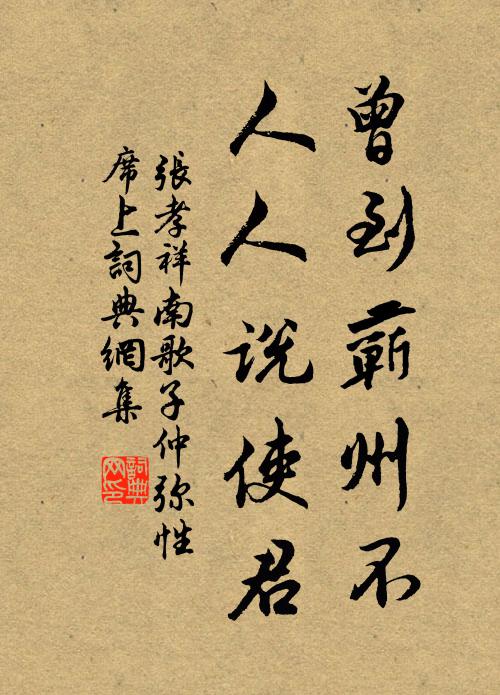 曾到蘄州不
人人说使君
張孝祥南歌子仲弥性
席上詞典網集
詞典网印